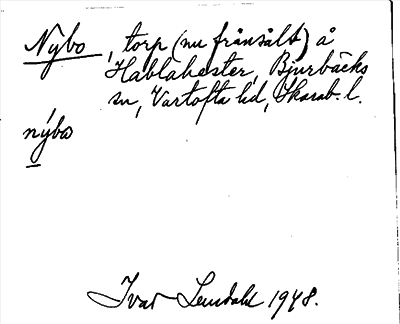 Nybo, torp (nu frånsålt) å
Hablahester, Bjurbäcks
sn, Vartofta hd, Skarab. l.
nýbo
Ivar Lundahl 1948.